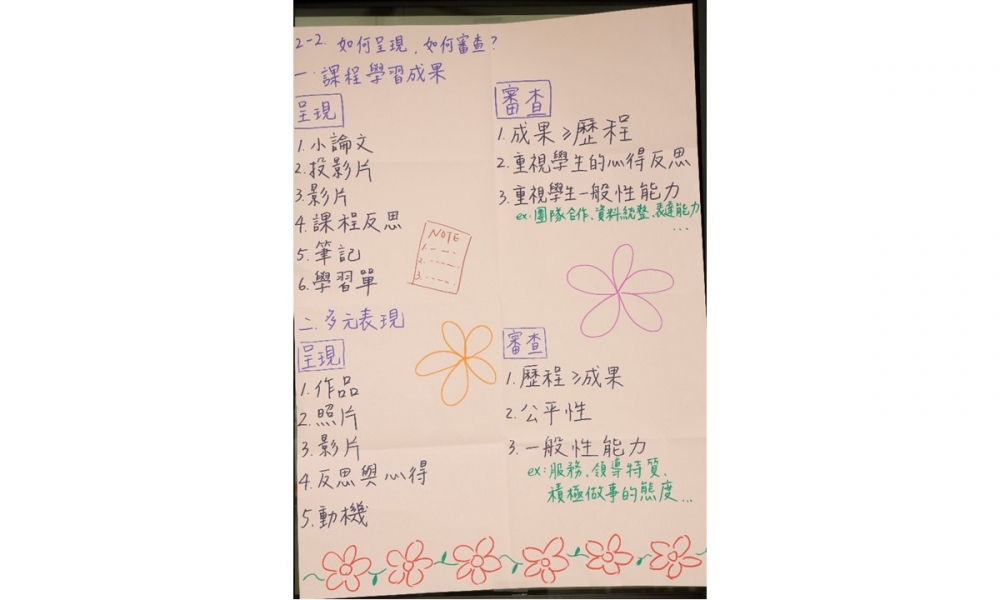 2-2. 如何呈現，如何審查？
一.課程學習成果
呈現
1.小論文
2.投影片
3.影片
4.課程反思
5.筆記
6.學習單
NOTE
1.
2.
3.
審查
1.成果≥歷程
2.重視學生的心得反思
3.重視學生一般性能力
ex:團隊合作、資料統整、表達能力
...
二.多元表現
呈現
1.作品
2.照片
3.影片
4.反思與心得
5.動機
審查
1.歷程≥成果
2.公平性
3.一般性能力
ex:服務、領導特質、
積極做事的態度...